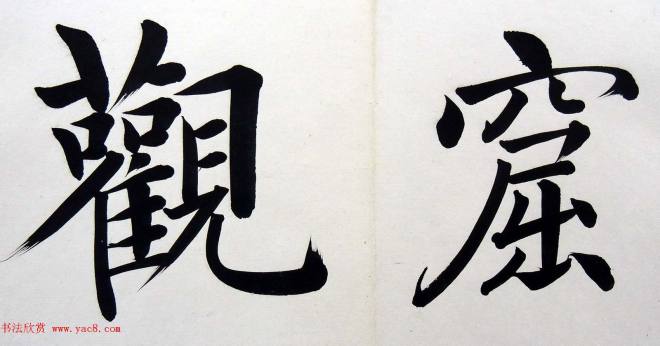 窟觀
书法欣赏 www.yac8.com